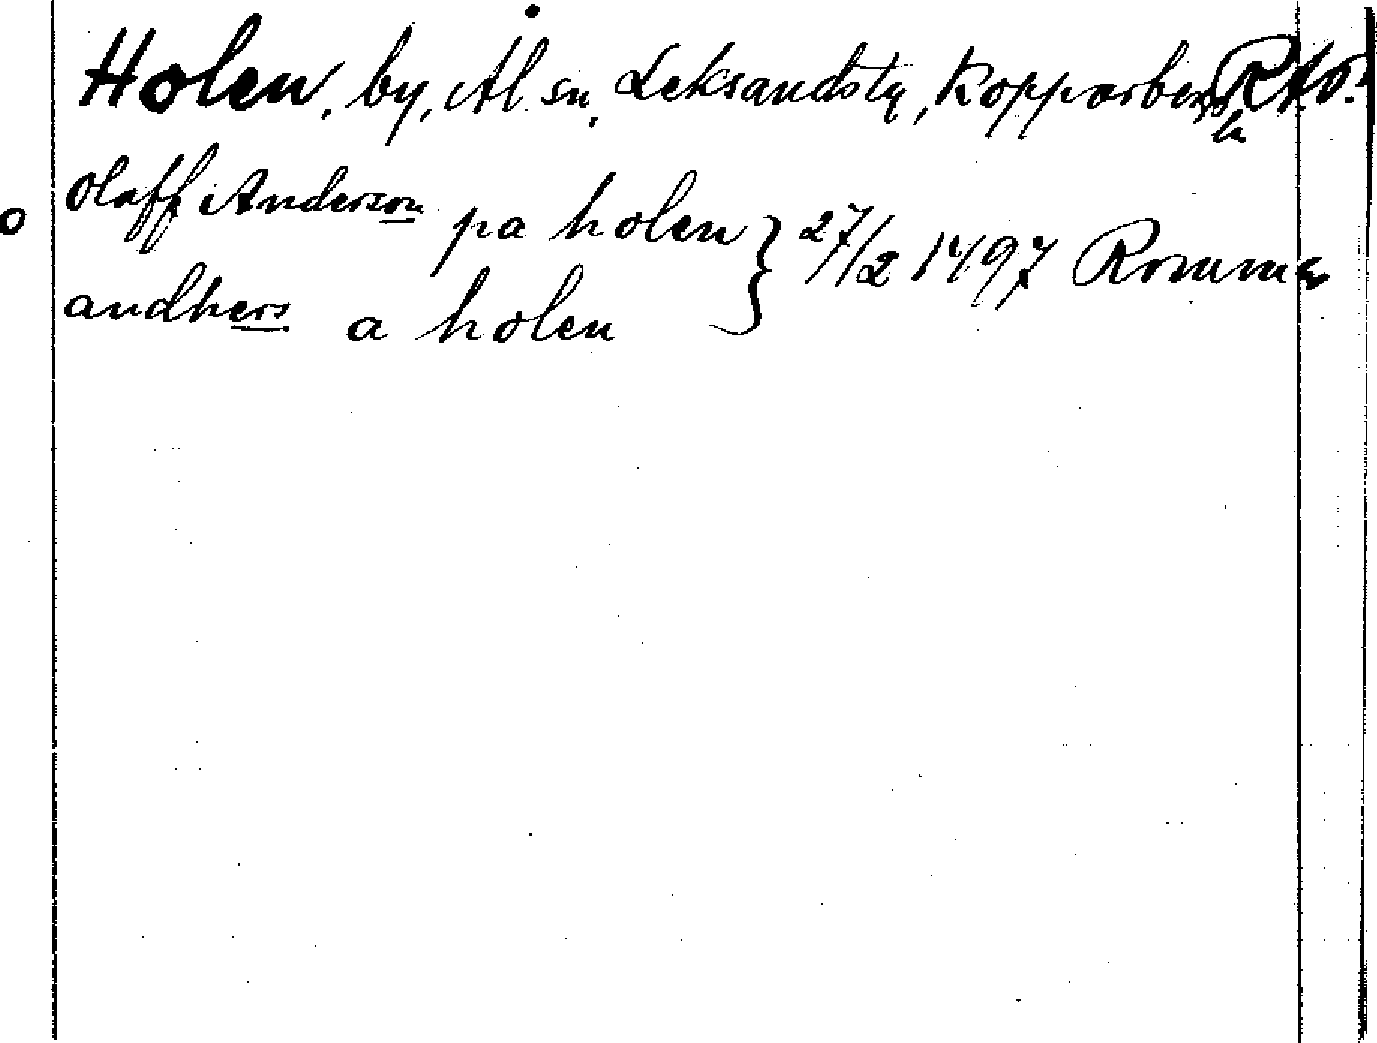 Holen, by, Ål sn. Leksandstg, Kopparbergs RAO.
h
Olaff Anderson pa holen } 27/2 1497 Romma
andhers a holen